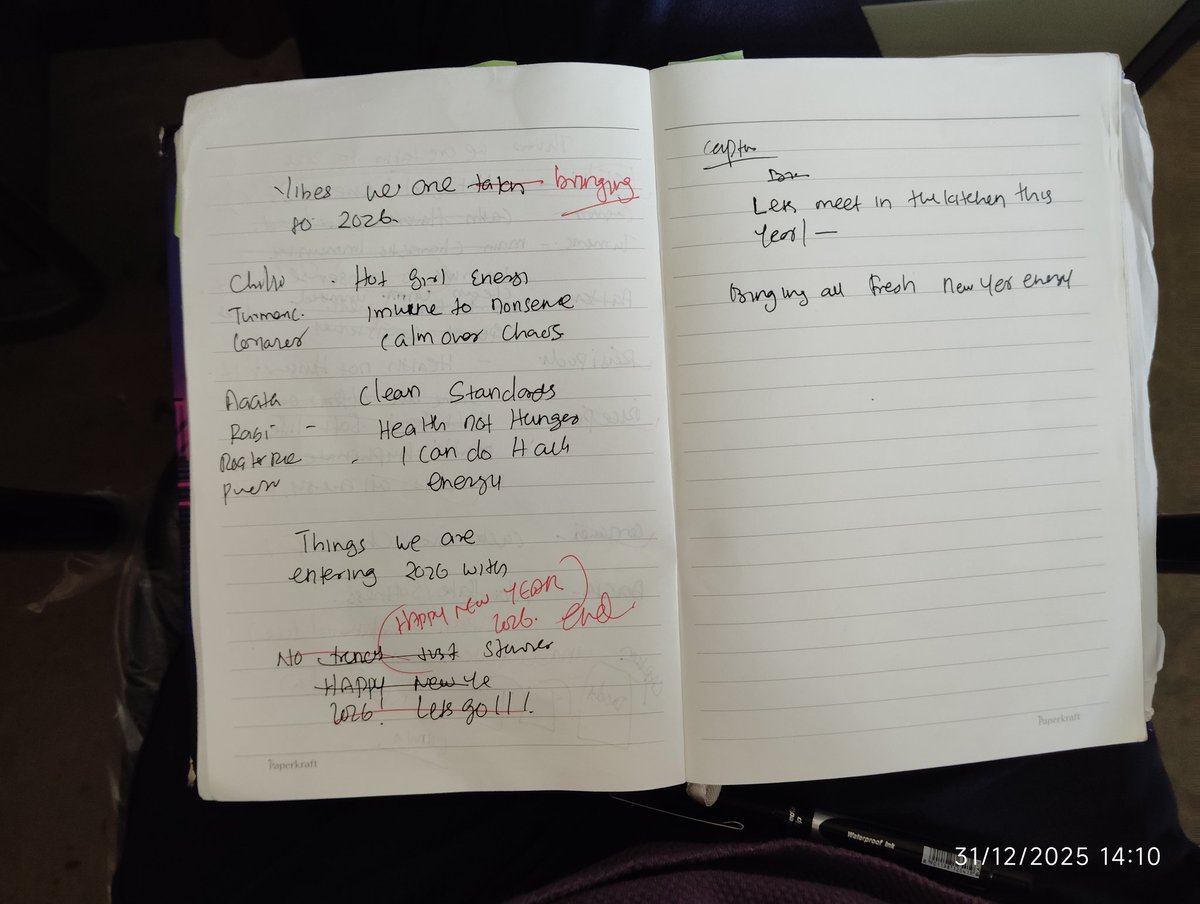 Vibes we are taken bringing
to 2026.
Chilli . Hot girl Energy
Turmeric. Immune to nonsense
Calm over Chaos.
Aaata Clean Standards
Ragi - Health not Hunger
. I can do Hard
energy
Things we are
entering 2026 with
HAPPY NEW YEAR
2026. end.
No trends Just
HAPPY New Ye
2026! Lets go!!!.
Paperkraft
Lets meet in the kitchen this
Year! —
Bringing all fresh New Yer energy
Paperkraft
Waterproof Ink
31/12/2025 14:10